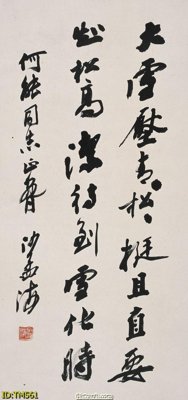 大雪壓青松青松挺且直要
知松高潔待到雪化時
何能同志正腕 沙孟海
ID:TM561